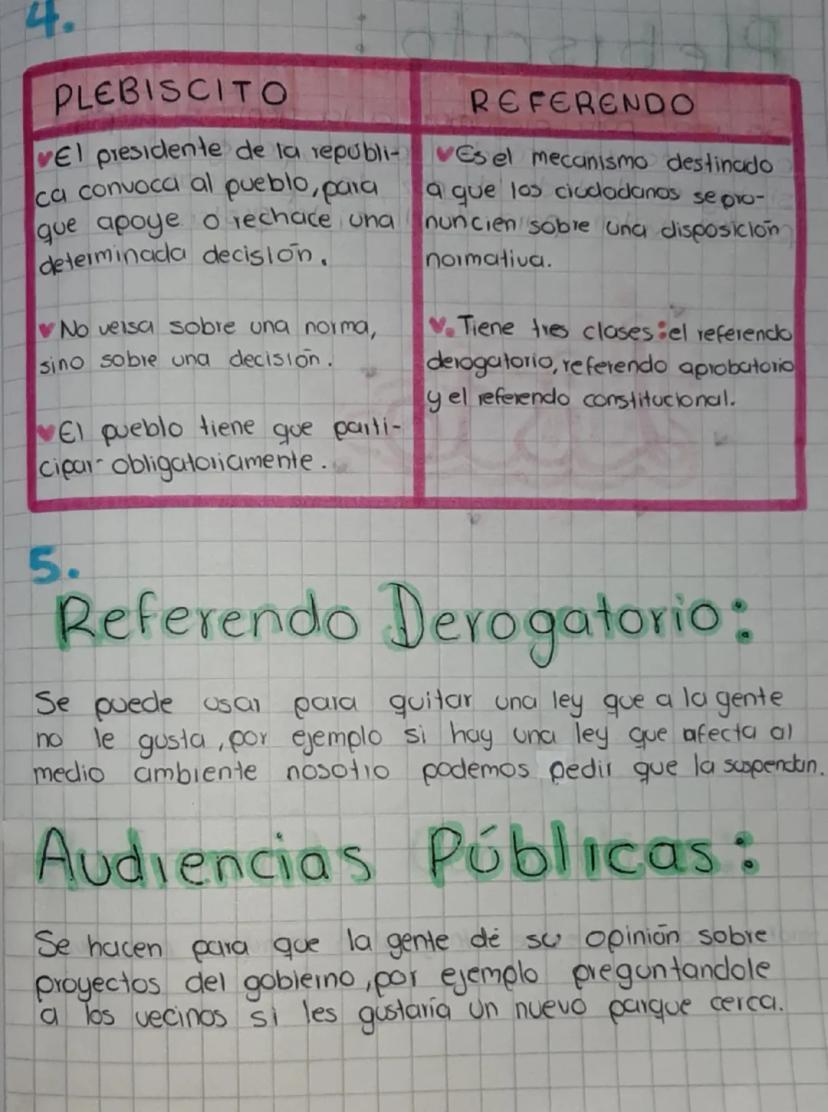 4.
PLEBISCITO
♥El presidente de la repúbli-
ca convoca al pueblo, para
que apoye o rechace una
determinada decisión.
♥No versa sobre una norma,
sino sobre una decisión.
♥El pueblo tiene que parti-
cipar obligatoriamente.
REFERENDO
♥Es el mecanismo destinado
a que los ciudadanos se pro-
nuncien sobre una disposición
normativa.
♥. Tiene tres clases: el referendo
derogatorio, referendo aprobatorio
y el referendo constitucional.
5.
Referendo Derogatorio:
Se puede usar para quitar una ley que a la gente
no le gusta, por ejemplo si hay una ley que afecta al
medio ambiente nosotro podemos pedir que la suspendan.
Audiencias Públicas:
Se hacen para que la gente dé su opinión sobre
proyectos del gobierno, por ejemplo preguntandole
a los vecinos si les gustaría un nuevo parque cerca.